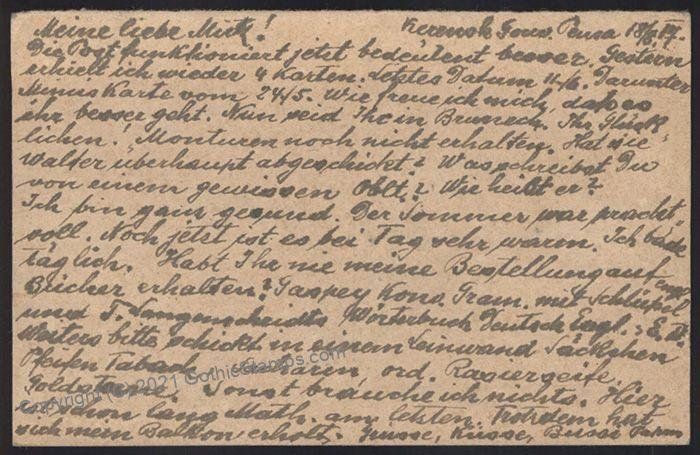 Meine liebe Mutt! Kerensk Gouv. Pensa 18/8 17.
Die Post funktioniert jetzt bedeutent besser. Gestern
erhielt ich wieder 4 Karten. letztes Datum 11/6. Darunter
Minus Karte vom 24/5. Wie freue ich mich, dass es
ihr besser geht. Nun seid Ihr in Bruneck. Ihr Glück
lichen! Monturen noch nicht erhalten. Hat sie
Walter überhaupt abgeschickt? Was schreibst Du
von einem gewissen Oblt.? Wie heißt er?
Ich bin ganz gesund. Der Sommer war pracht
voll. Noch jetzt ist es bei Tag sehr warm. Ich bade
täglich. Habt Ihr nie meine Bestellung auf engl.
Bücher erhalten? Gaspey Konv. Gram. mit Schlüssel
und T. Langenscheidts Wörterbuch Deutsch Engl. : E. D.
Weiters bitte schickt in einem Leinwand Säckchen
Pfeifen Tabach ord. Rasierseife,
Goldstone. Sonst bräuche ich nichts. Hier
schon lang Math. am letzten. Trotzdem hat
sich mein Balkon erholt. Grüsse, Küsse, Bussi
Copyright (c) 2021 GothicStamps.com